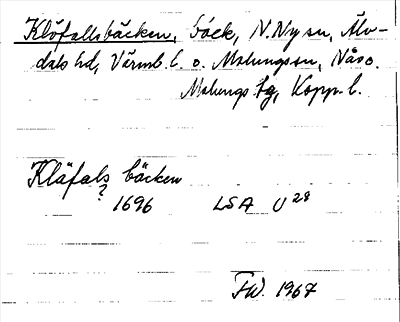 Klöfallsbäcken, bäck, N. Ny sn, Älv-
dals hd, Värml. l. o. Malungs sn, Nås o.
Malungs tg, Kopp. l.
Kläfals bäcken
?
1696 LSA U 28
FW. 1967